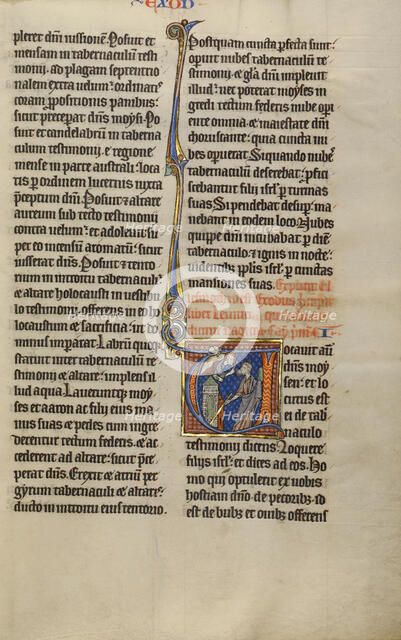 EXOD
pleret dñi iussionē. Posuit et
mensam in tabernaculū testi
monij, ad plagam septentrio
nalem extra uelum: ordinatis
coram ppositionis panibus:
sicut preceperat dñs moysi. Po
suit et candelabrum in taberna
culum testimonij, e regione
mense in parte australi: loca
tis p ordinem lucernis iuxta
pceptum dñi. Posuit et altare
aureum sub tecto testimonij
contra uelum: et adoleuit su
per eo incensū aromatum: sicut
iusserat dñs. Posuit et tento
rium in introitu tabernaculi
et altare holocausti in uestibulo
testimonij, offerens in eo ho
locaustum et sacrificia: ut do
minus imparat. Labrū quoqz
statuit inter tabernaculū tes
timonij et altare: implens il
lud aqua. Lauerunt moy
ses et aaron ac filij eius man
nus suas et pedes cum ingre
derentur tectum federis, et ac
cederent ad altare: sicut pce
perat dñs. Erexit et atriū per
gyrum tabernaculi et altaris:
ducto in introitu eius tentorio.
Postquam cuncta pfecta sunt:
opuit nubes tabernaculū te
stimonij: et gla dñi impleuit
illud: nec poterat moyses in
gredi tectum federis nube op
iente omnia: et maiestate dñi
choruscante: quia cuncta nu
bes opuerat. Si quando nubes
tabernaculū deserebat: pfici
scebantur filij isrl p turmas
suas. Si pendebat desup: ma
nebant in eodem loco. Nubes
quippe dñi incubabat p diē
tabernaculo: et ignis in nocte:
uidentibz pplis isrl p cunctas
mansiones suas. Explicit el
liber Leuitici
Uocauit aū
dñs moy
sen: et lo
cutus est
ei de tab
naculo
testimonij dicens: Loquere
filijs isrl: et dices ad eos: Ho
mo qui optulerit ex uobis
hostiam dño de pecoribz id
est de bubz et ouibz offerens
heritage images